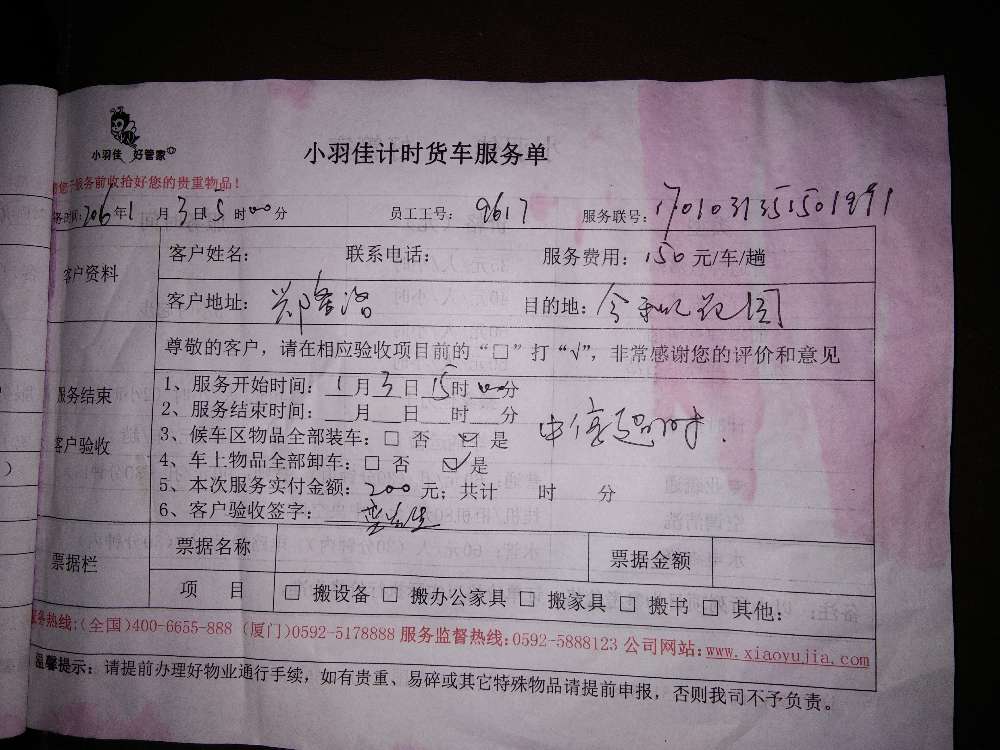 小羽佳 好管家
小羽佳计时货车服务单
您于服务前收拾好您的贵重物品！
年1月3日15时00分 员工工号：9617 服务联号：
客户资料
客户姓名： 联系电话： 服务费用：150元/车/趟
客户地址： 目的地：
尊敬的客户，请在相应验收项目前的“□”打“√”，非常感谢您的评价和意见
服务结束
客户验收
1、服务开始时间：1月3日15时00分
2、服务结束时间：__月__日__时__分
3、候车区物品全部装车：□ 否 ☑ 是 中停超时.
4、车上物品全部卸车：□ 否 ☑ 是
5、本次服务实付金额：200元；共计 时 分
6、客户验收签字：
票据栏
票据名称 票据金额
项 目 □ 搬设备 □ 搬办公家具 □ 搬家具 □ 搬书 □ 其他：
服务热线:(全国)400-6655-888 (厦门)0592-5178888 服务监督热线:0592-5888123 公司网站:www.xiaoyujia.com
温馨提示：请提前办理好物业通行手续，如有贵重、易碎或其它特殊物品请提前申报，否则我司不予负责。